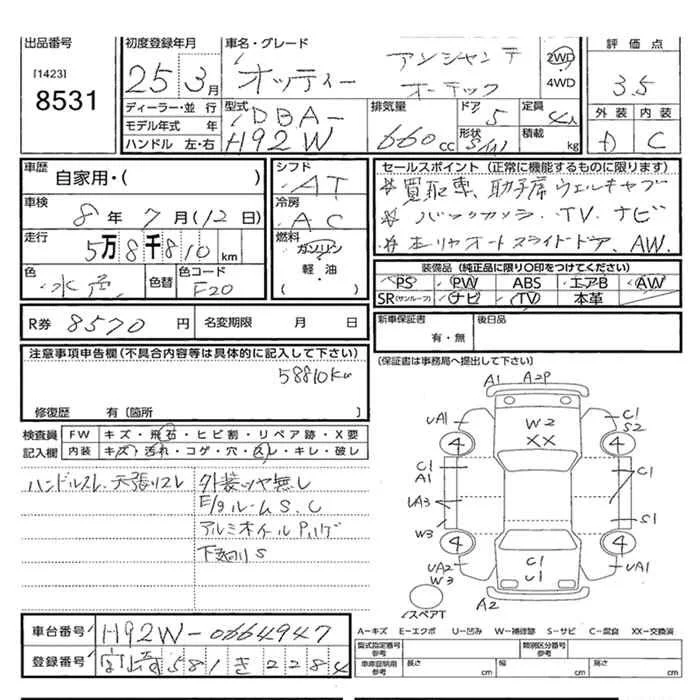 出品番号
[1423]
8531
初度登録年月
25 3月
車名・グレード
オッティー
アンシャンテ
オーテック
2WD
4WD
評価点
3.5
外装 内装
D C
ディーラー・並行
モデル年式 年
ハンドル 左・右
型式
DBA-
H92W
排気量
660cc
ドア 5
形状 S/W
定員 4人
積載 kg
車歴
自家用・( )
車検
8年 7月(12日)
走行
5万8千810km
色
水色
色替
色コード
F20
シフト
AT
冷房
AC
燃料
ガソリン
軽・油
( )
セールスポイント (正常に機能するものに限ります)
買取車、助手席ウェルキャブ
バックカメラ、TV、ナビ
左リヤオートスライドドア、AW
装備品(純正品に限り○印をつけてください)
PS PW ABS エアB AW
SR(サンルーフ) ナビ TV 本革
R券 8570円 名変期限 月 日
新車保証書
有・無
後日品
(保証書は事務局へ提出して下さい)
注意事項申告欄(不具合内容等は具体的に記入して下さい)
58810Km
修復歴 有〔箇所 〕
検査員
記入欄
FW キズ・飛石・ヒビ割・リペア跡・X要
内装 キズ・汚れ・コゲ・穴・スレ・キレ・破レ
ハンドルスレ、天張リスレ
外装ツヤ無し
E/gルームS、C
アルミホイール
下廻りS
A1 A2P
UA1
W2
XX
C1
S2
4 4
C1
A1
C1
UA3
S1
W3
4 4
UA2
W3
C1
U1
UA1
A2
スペアT
A-キズ E-エクボ U-凹み W-補修跡 S-サビ C-腐食 XX-交換済
車台番号 H92W-0664947
登録番号 581き2284
型式指定番号
参考
類別区分番号
参考
車庫証明用
参考
長さ cm 幅 cm 高さ cm